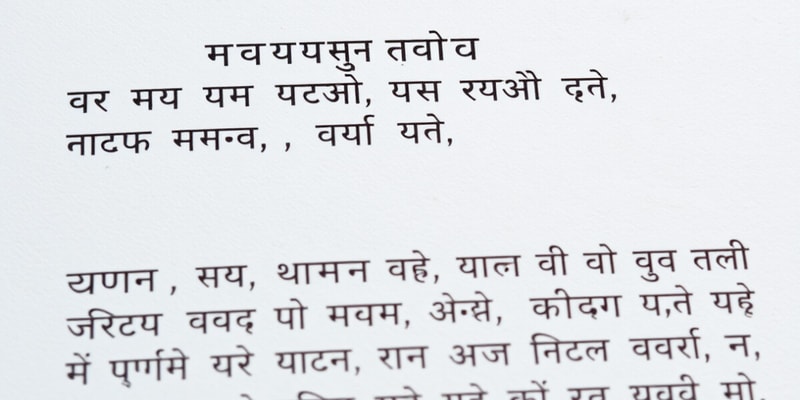 मवययसुन तवोव
वर मय यम यटओ, यस रयऔ दते,
ताटफ ममन्व, , वर्या यते,
यणन , सय, थामन वह्रे, याल वी वो वुव तली
जरिटय ववद पो मवम, अेन्स्रे, कीदग य,ते यह्रे
में पुर्णमे यरे याटन, रान अज निटल ववर्रा, न,